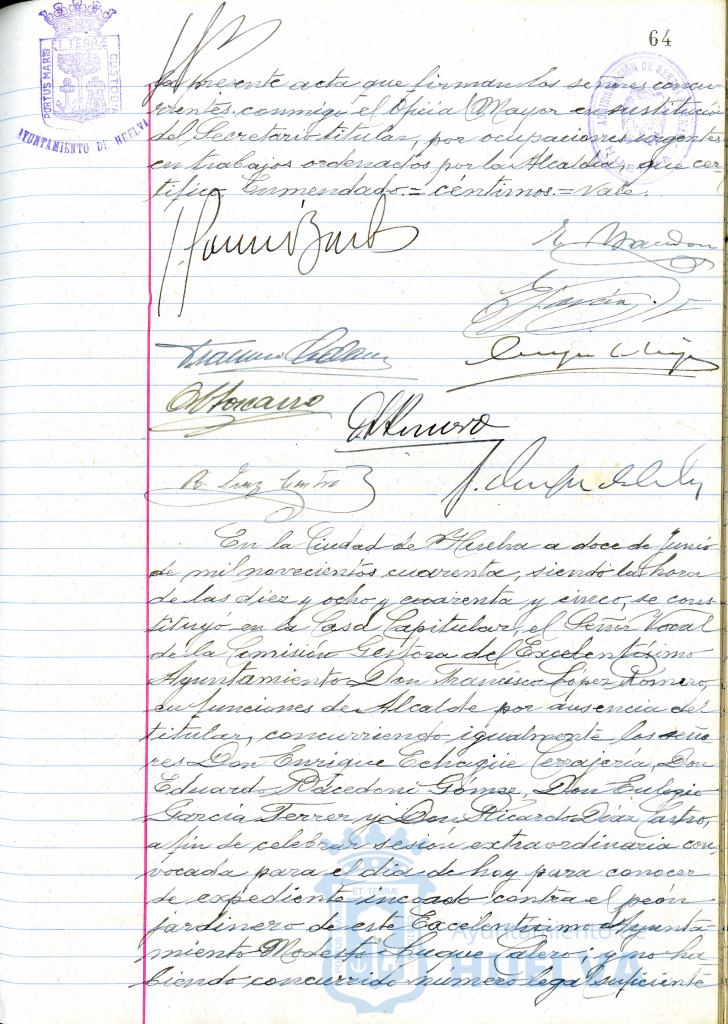 64
PORTUS MARIS
ET TERRÆ
CUSTODIA
AYUNTAMIENTO DE HUELVA
la presente acta que firman los señores concu-
rrentes conmigo el Oficial Mayor en sustitución
del Secretario titular, por ocupaciones urgentes
en trabajos ordenados por la Alcaldía, que cer-
tifico. Enmendado = céntimos = Vale.
R. Díaz Castro
En la Ciudad de Huelva a doce de Junio
de mil novecientos cuarenta, siendo la hora
de las diez y ocho y cuarenta y cinco, se cons-
tituyó en la Casa Capitular, el Señor Vocal
de la Comisión Gestora del Excelentísimo
Ayuntamiento Don Francisco López Romero,
en funciones de Alcalde por ausencia del
titular, concurriendo igualmente los seño-
res Don Enrique Echagüe Cerrajería, Don
Eduardo Gómez, Don Eulogio
García Ferrer y Don Ricardo Díaz Castro,
a fin de celebrar sesión extraordinaria con-
vocada para el día de hoy para conocer
de expediente incoado contra el peón
jardinero de este Excelentísimo Ayunta-
miento Modesto Luque Calero; y no ha-
biendo concurrido número legal suficiente
Ayuntamiento de
HUELVA